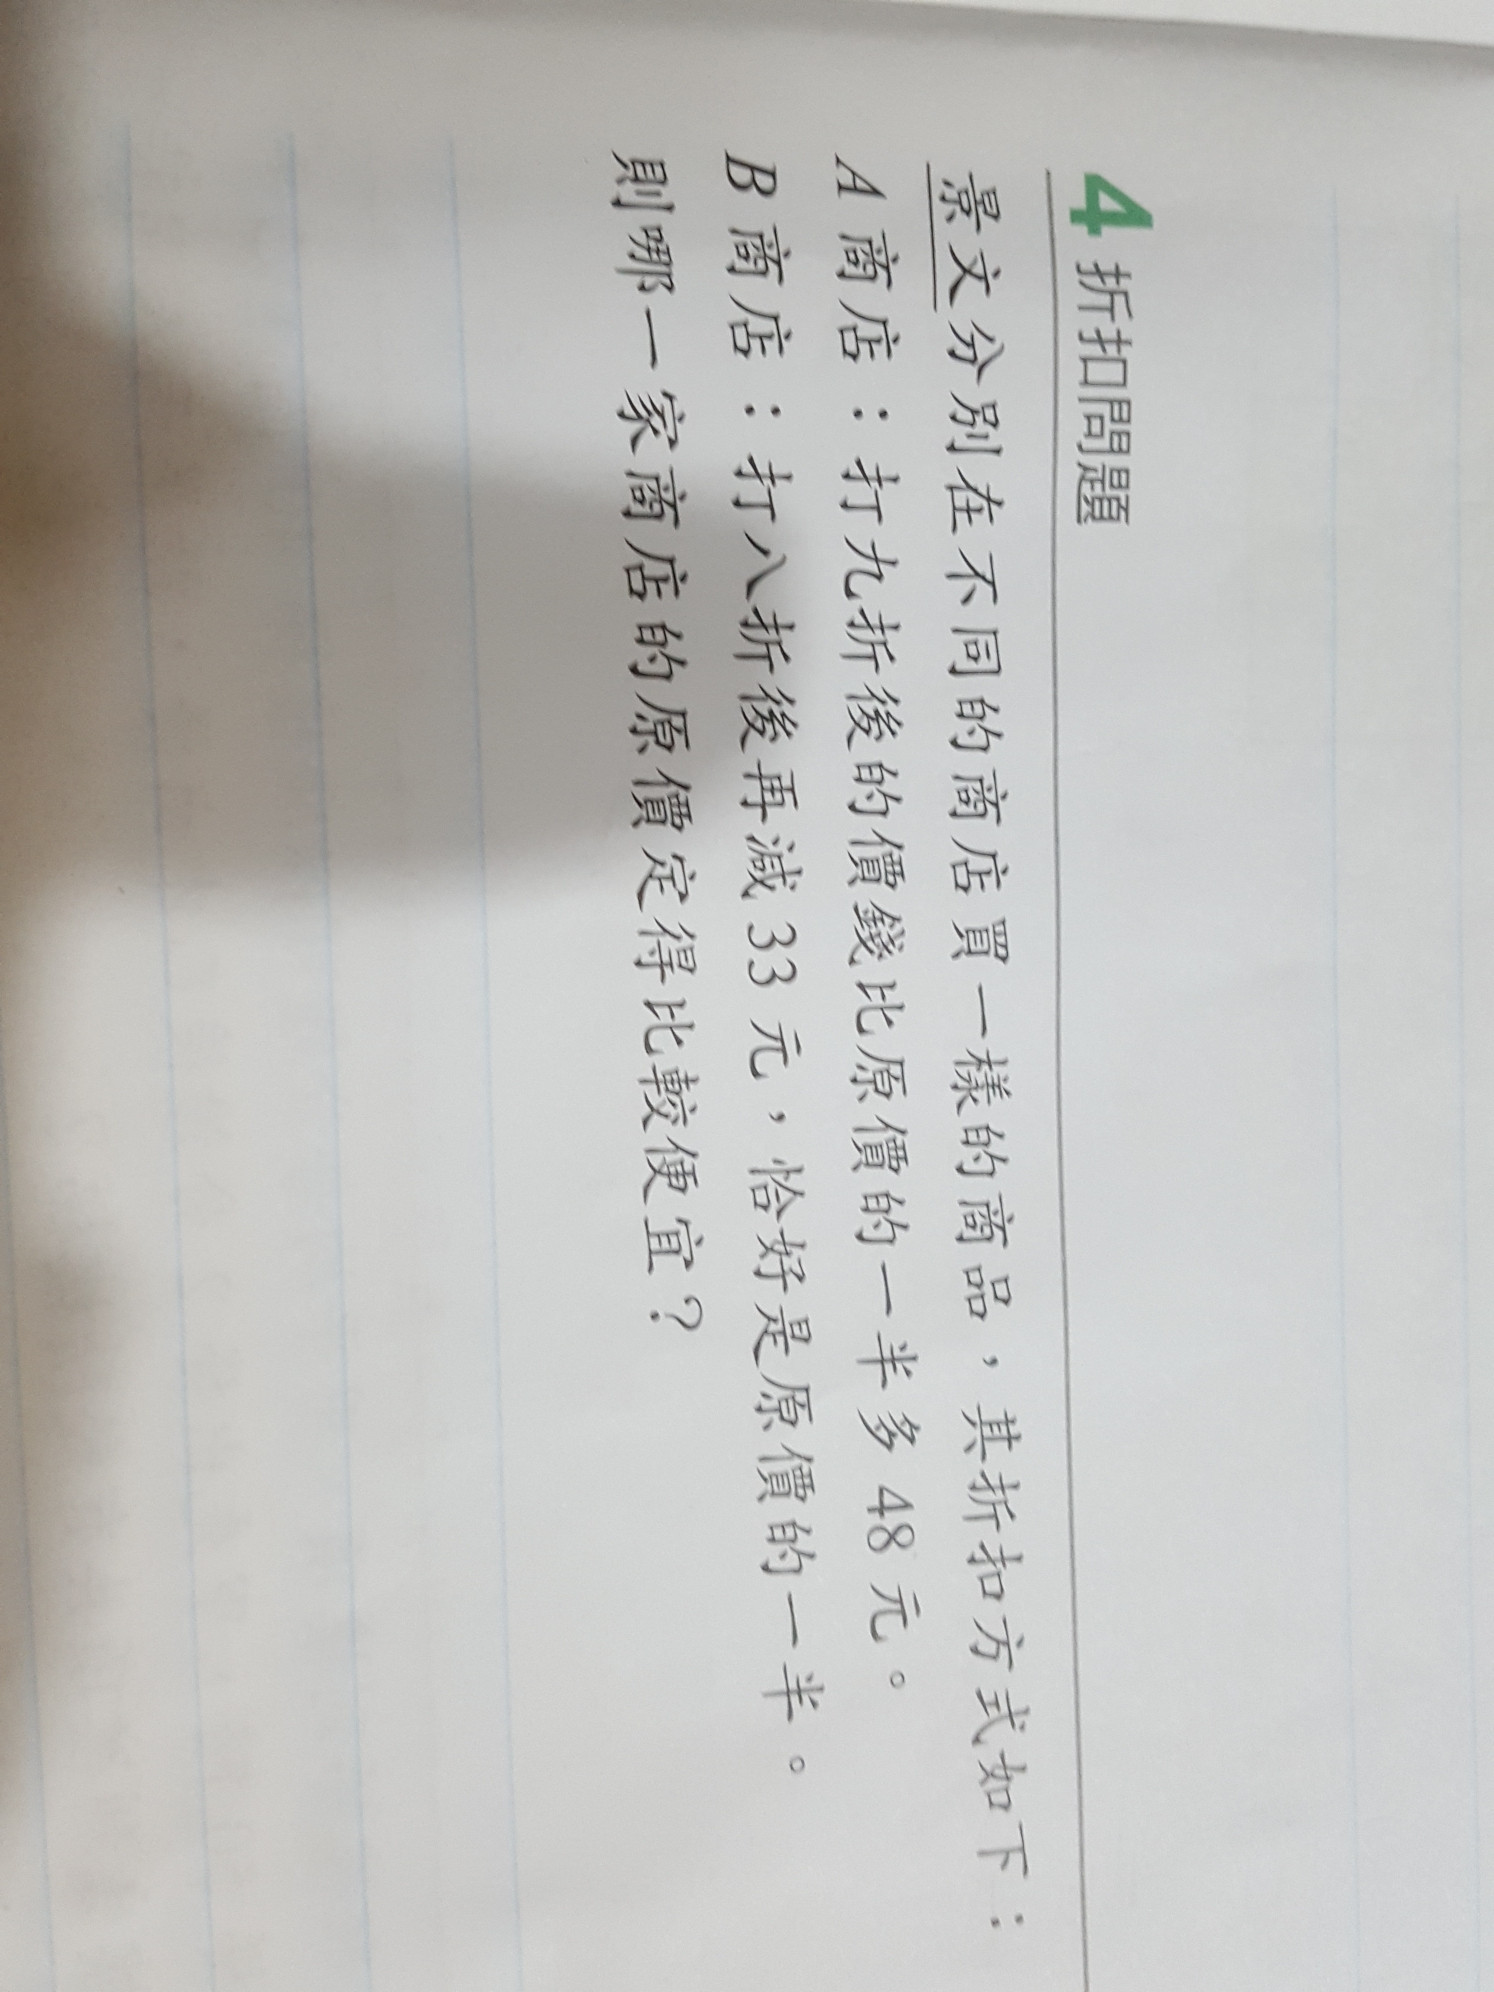 4 折扣問題
景文分別在不同的商店買一樣的商品，其折扣方式如下：
A 商店：打九折後的價錢比原價的一半多 48 元。
B 商店：打八折後再減 33 元，恰好是原價的一半。
則哪一家商店的原價定得比較便宜？